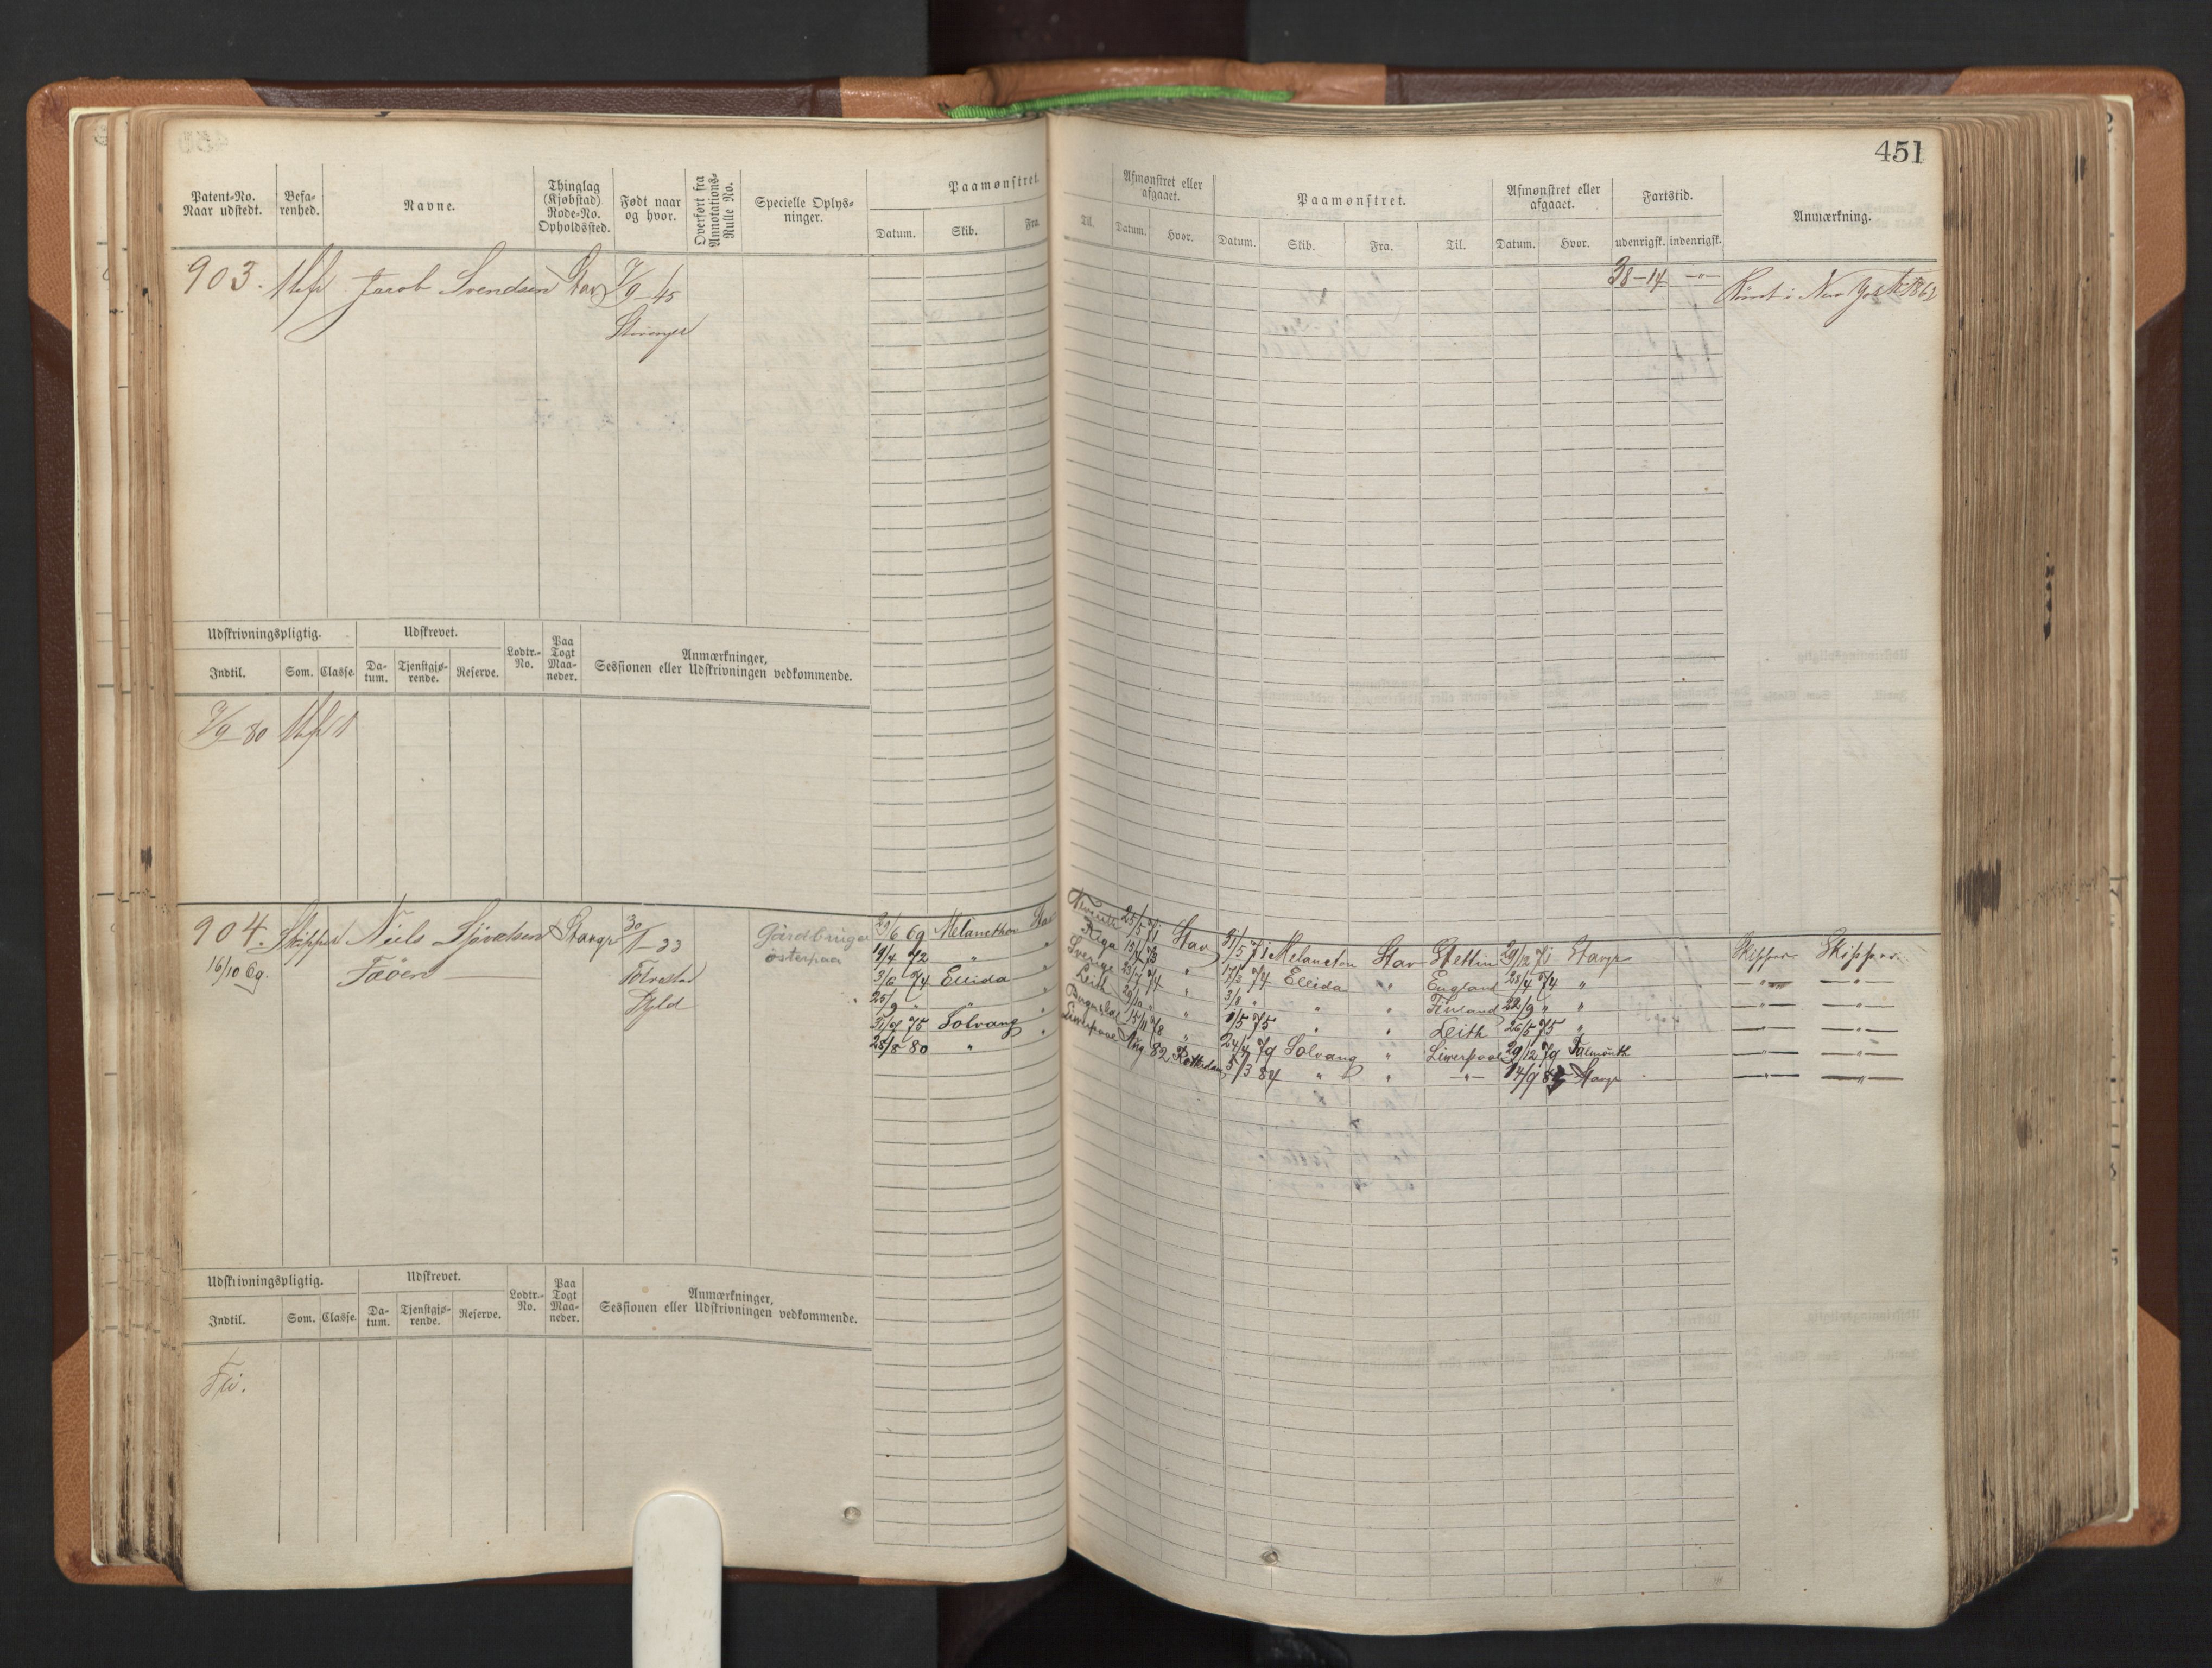 451
Patent-No. Naar udstedt.
Befarenhed.
Navne.
Thinglag (Kjøbstad) Rode-No. Opholdssted.
Født naar og hvor.
Overført fra Annotations-Rulle No.
Specielle Oplysninger.
Paamønstret.
Datum. Skib. Fra. Til.
Afmønstret eller afgaaet.
Datum. Hvor.
Paamønstret.
Datum. Skib. Fra. Til.
Afmønstret eller afgaaet.
Datum. Hvor.
Fartstid.
udenrigsk. indenrigsk.
Anmærkning.
903. Jacob Svendsen Stav 7/9-45 38-14 -"- Rømt i New York 1862
Stavanger
Udskrivningspligtig. Udskrevet. Lodtr.-No. Paa Togt Maaneder. Anmærkninger, Sessionen eller Udskrivningen vedkommende.
Indtil. Som. Classe. Datum. Tjenstgjørende. Reserve.
7/9-80
904. Skipper Niels Sjövelsen Stangr 30/1-33 Gårdbruger 29/6 69 Melancthon Stav 25/5 71 Stav 31/5 71 Melancton Stav Stettin 29/12 71 Stavgr Skipper Skipper
16/10 69. Faöen Torvestad österpaa 19/4 72 " " Riga 15/4 73 " 17/3 74 Ellida " England 28/4 74 " -"- -"-
Skjold 3/6 74 Ellida " Sverige 23/7 74 " 3/8 " " " Finland 22/9 " " -"- -"-
25/9 " " " Leith 29/10 " " 1/5 75 " " Leith 26/5 75 " -"- -"-
31/7 75 Solvang " 15/11 78 " 24/4 79 Solvang " Liverpool 29/12 79 Falmouth -"- -"-
25/8 80 " " Liverpool Aug 82 Rotterdam 5/3 84 " " -"- 14/9 Stavgr -"- -"-
Udskrivningspligtig. Udskrevet. Lodtr.-No. Paa Togt Maaneder. Anmærkninger, Sessionen eller Udskrivningen vedkommende.
Indtil. Som. Classe. Datum. Tjenstgjørende. Reserve.
Fri.